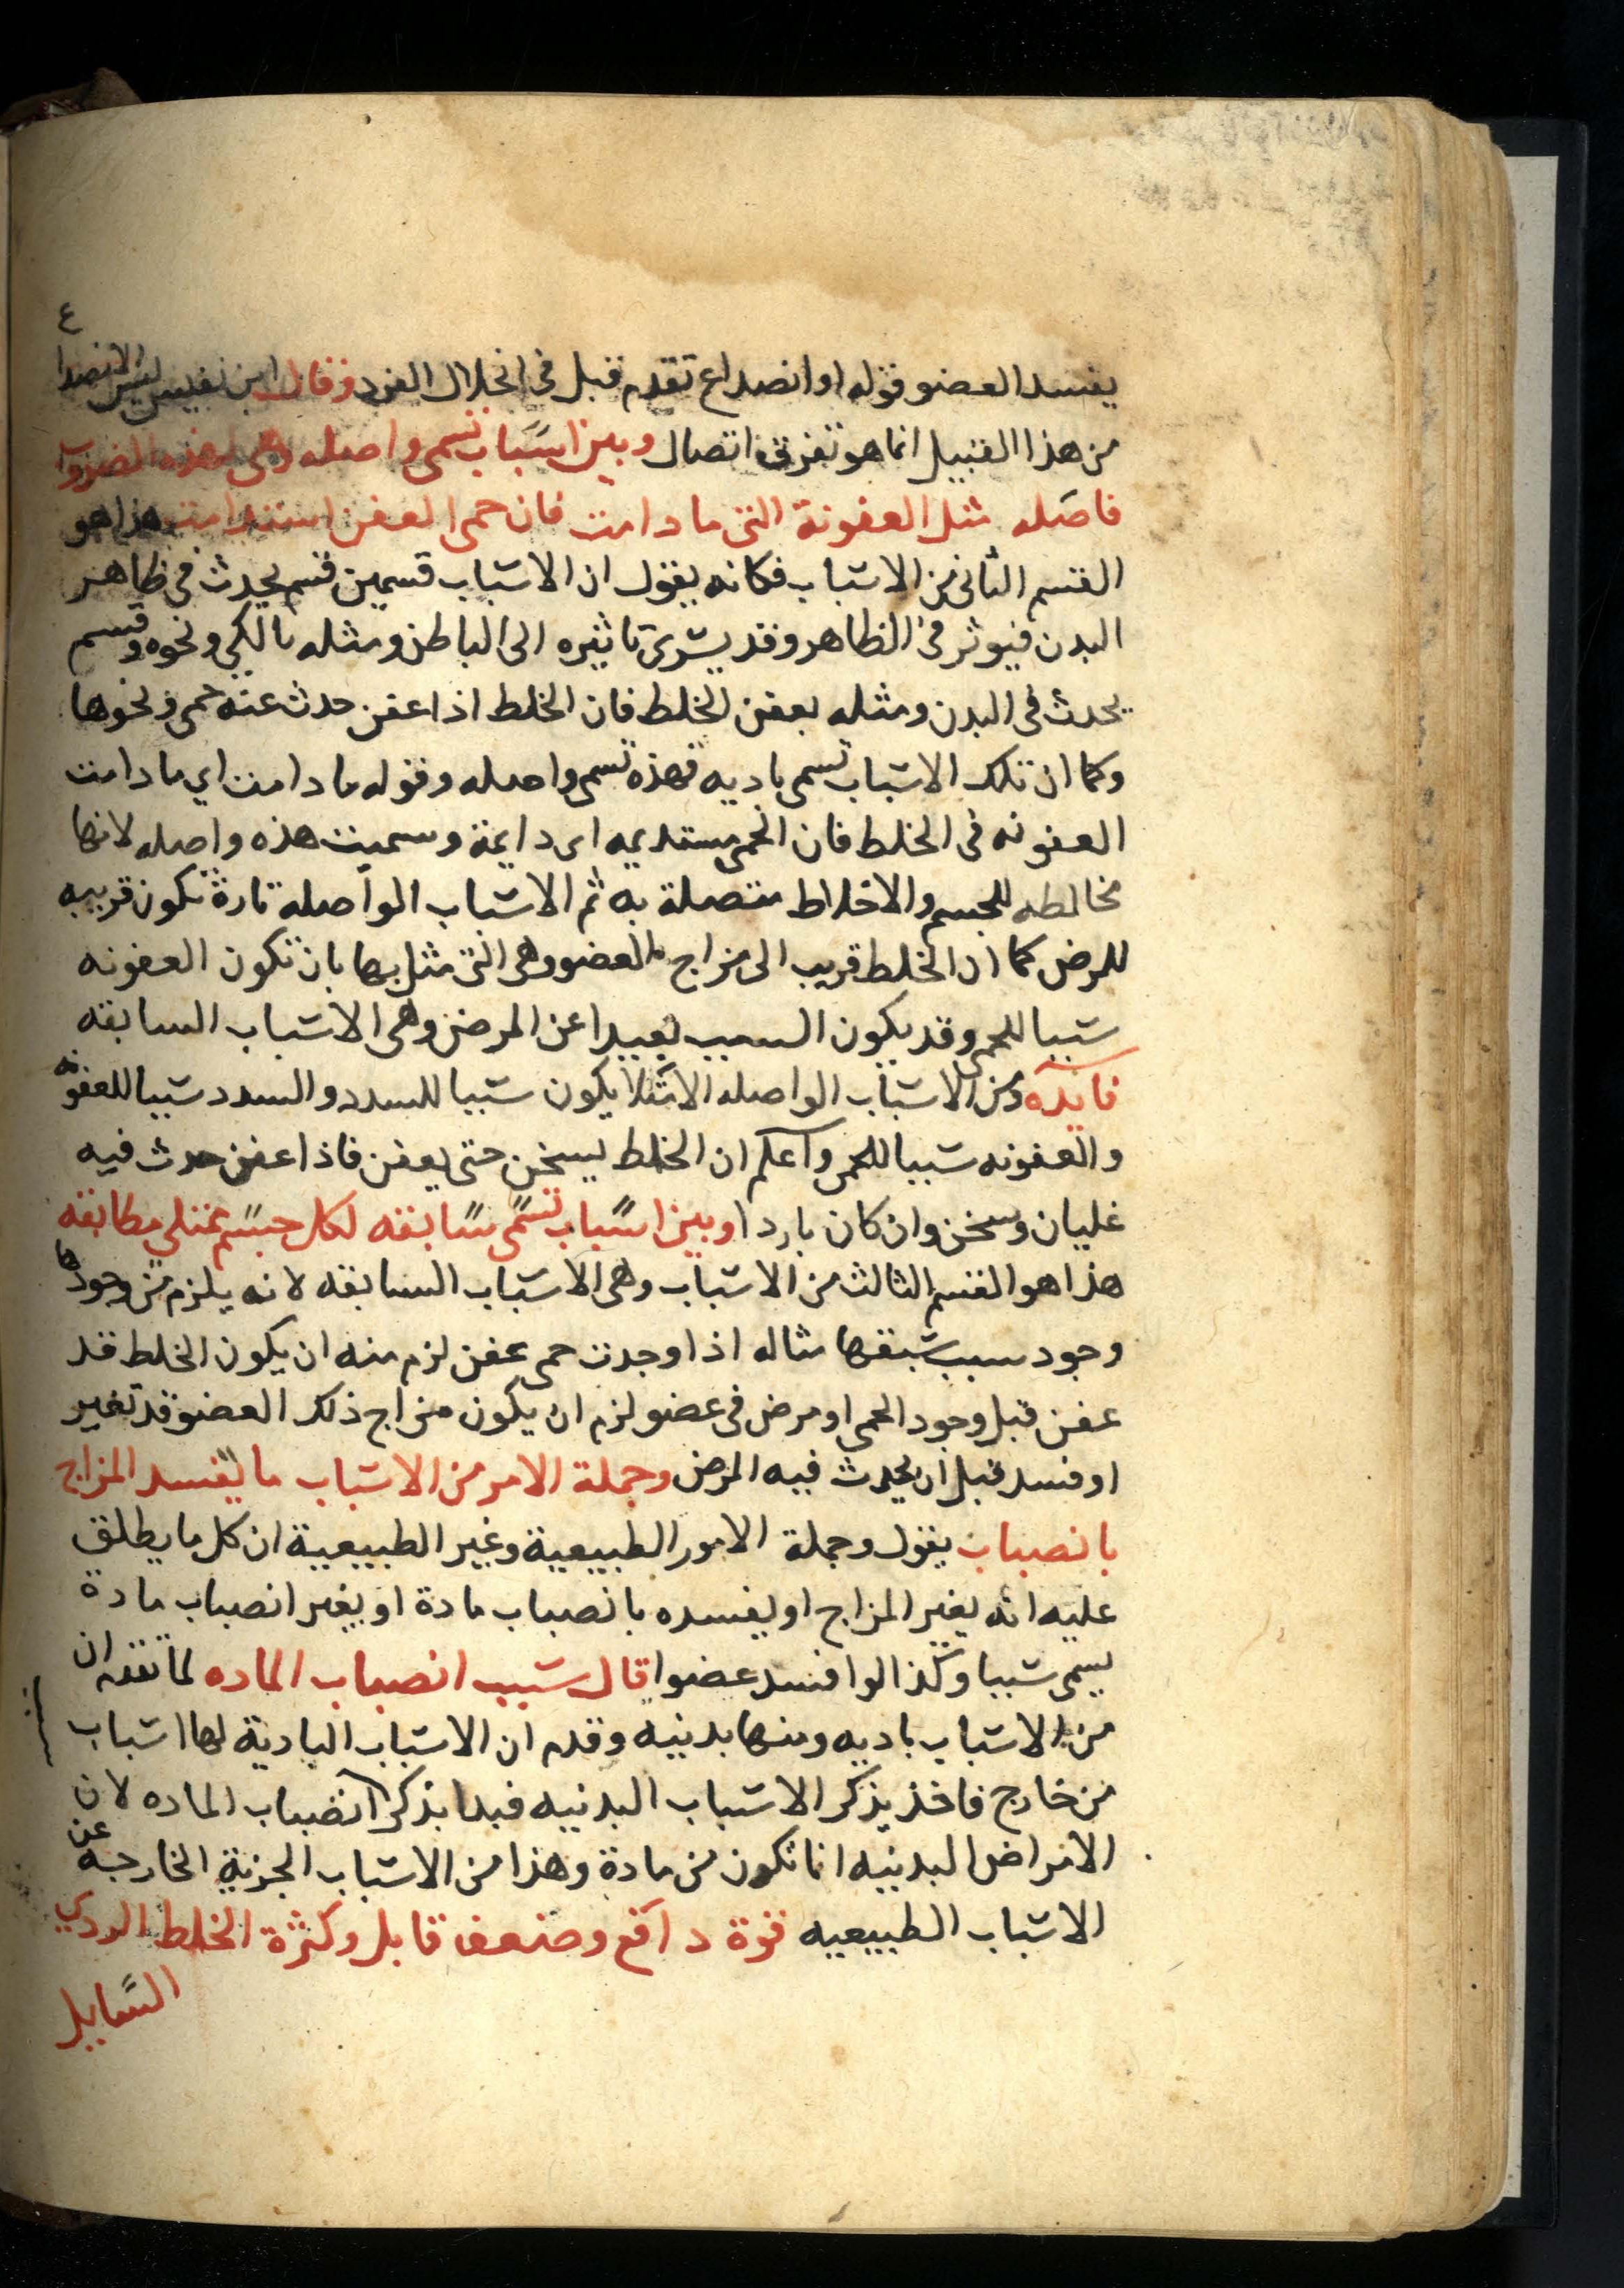 يفسد العضو قوله او انصداع تقدم قبل فى انحلال الفرد وقال ابن نفيس ليس الانصداع
من هذا القبيل انما هو تفرق اتصال وبين اسباب تسمى واصله وهى لهذه الضروب
فاصله مثل العفونة التى ما دامت فان حمى العفن استدامت هذا هو
القسم الثانى من الاسباب فكانه يقول ان الاسباب قسمين قسم يحدث فى ظاهر
البدن فيوثر فى الظاهر وقد يسرى تاثيره الى الباطن ومثله بالكي ونحوه وقسم
يحدث فى البدن ومثله بعفن الخلط فان الخلط اذا عفن حدث عنه حمى ونحوها
وكما ان تلك الاسباب تسمى باديه فهذه تسمى واصله وقوله ما دامت اي ما دامت
العفونه فى الخلط فان الحمى مستديمه اى دايمة وسميت هذه واصله لانها
مخالطه للجسم والاخلاط متصلة به ثم الاسباب الواصلة تارة تكون قريبه
للمرض كما ان الخلط قريب الى مزاج العضو وهى التى مثل بها بان تكون العفونه
سببا للحمى وقد يكون السبب بعيدا عن المرض وهى الاسباب السابقه
فايده ومن الاسباب الواصله الامتلا يكون سببا للسدد والسدد سببا للعفونه
والعفونه سببا للحمى واعلم ان الخلط يسخن حتى يعفن فاذا عفن حدث فيه
غليان وسخن وان كان باردا وبين اسباب تسمى سابقه لكل جسم ممتلي مطابقه
هذا هو القسم الثالث من الاسباب وهى الاسباب السابقه لانه يلزم من وجودها
وجود سبب سبقها مثاله اذا وجدت حمى عفن لزم منه ان يكون الخلط قد
عفن قبل وجود الحمى او مرض فى عضو لزم ان يكون مزاج ذلك العضو قد تغير
او فسد قبل ان يحدث فيه المرض وجملة الامر من الاسباب ما يفسد المزاج
بانصباب يقول وجملة الامور الطبيعية وغير الطبيعية ان كل ما يطلق
عليه انه يغير المزاج او يفسده بانصباب مادة او بغير انصباب مادة
يسمى سببا وكذا لو افسد عضوا قال سبب انصباب الماده لما تقدم ان
من الاسباب باديه ومنها بدنيه وقدم ان الاسباب البادية لها اسباب
من خارج فاخذ يذكر الاسباب البدنيه فبدا بذكر انضباب الماده لان
الامراض البدنيه انما تكون من مادة وهذا من الاسباب الجزية الخارجه عن
الاسباب الطبيعيه قوة دافع وضعف قابل وكثرة الخلط الردي
السايل